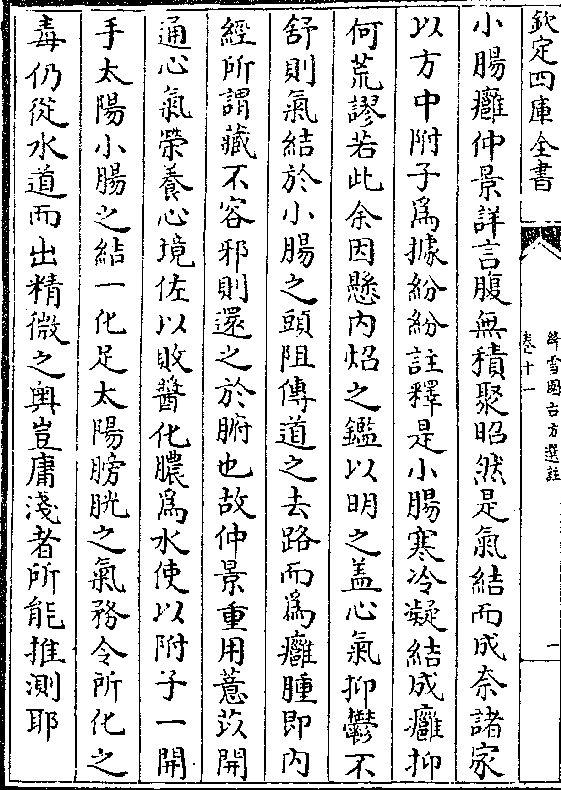 欽定四庫全書
絳雪園古方選註
卷十一
一
小腸癰仲景詳言腹無積聚昭然是氣結而成奈諸家
以方中附子為據紛紛註釋是小腸寒冷凝結成癰抑
何荒謬若此余因懸內炤之鑑以明之盖心氣抑鬱不
舒則氣結於小腸之頭阻傳道之去路而為癰腫即內
經所謂藏不容邪則還之於腑也故仲景重用薏苡開
通心氣榮養心境佐以敗醬化膿為水使以附子一開
手太陽小腸之結一化足太陽膀胱之氣務令所化之
毒仍從水道而出精微之奧豈庸淺者所能推測耶